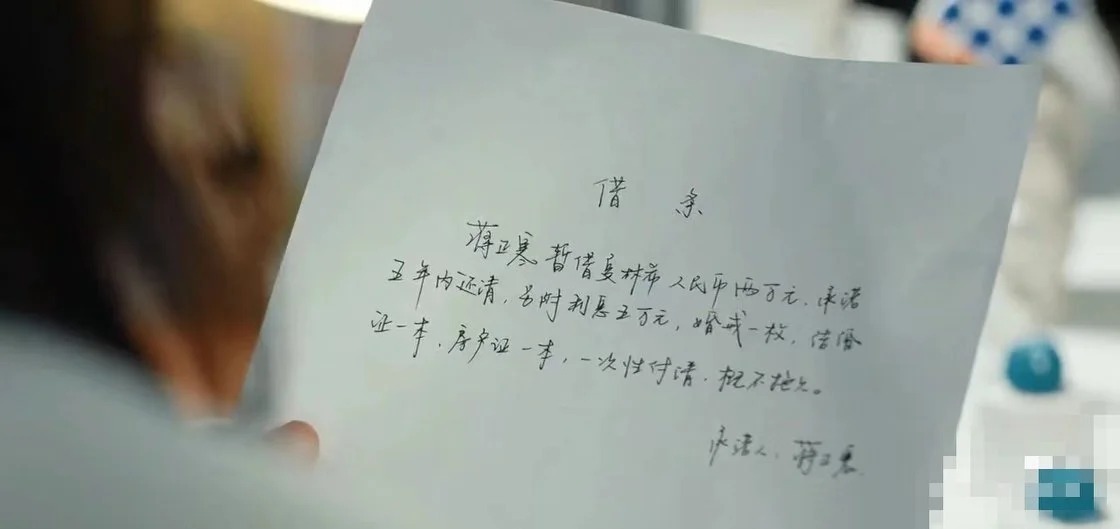 借条
蒋正寒暂借夏林希人民币两万元，承诺
五年内还清，另附利息五万元，婚戒一枚，结婚
证一本，房产证一本，一次性付清，概不拖欠。
承诺人：蒋正寒